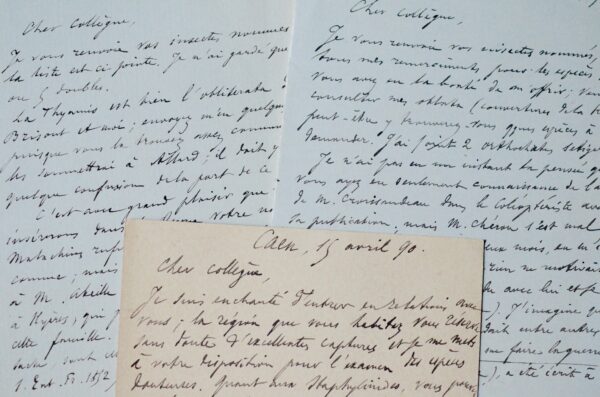 Cher collègue,
Je vous renvoie vos insectes nommés
la liste est ci jointe. Je n'ai gardé que
ou 5 doubles.
La Thyamis est bien l'obliterata
Brisout et moi; envoyez m'en quelques
puisque vous la trouvez assez commune
les soumettrai à Allard; il doit y
quelque confusion de la part de ce
C'est avec grand plaisir que
insérerons dans Votre
Malachius
comme; mais
à M. Abeille
à Hyères, qui
cette famille.
sont
1. Ent. Fr. 1852,
Cher collègue,
Je vous renvoie vos insectes nommés,
tous mes remerciments pour les espèces
vous avez eu la bonté de m'offrir; veu
consulter mes oblata (couvertures de la
peut-être y trouverez-vous qques espèces à
demander. J'ai joint 2 orthochaetes setiger
Je n'ai pas eu un instant la pensée q
vous ayez eu seulement connaissance de l'a
de M. Croissandeau dans le Coléoptériste av
sa publication; mais M. Chéron s'est mal
eux mois, en m'é
ne motivait
avec lui et
J'imagine q
dait entre autres
me faire la guerre
), a été écrit à
Caen, 15 avril 90.
Cher collègue,
Je suis enchanté d'entrer en relations avec
vous; la région que vous habitez vous réserve
sans doute d'excellentes captures et je me mets
à votre disposition pour l'examen des espèces
douteuses. Quant aux Staphylinides, vous pouvez